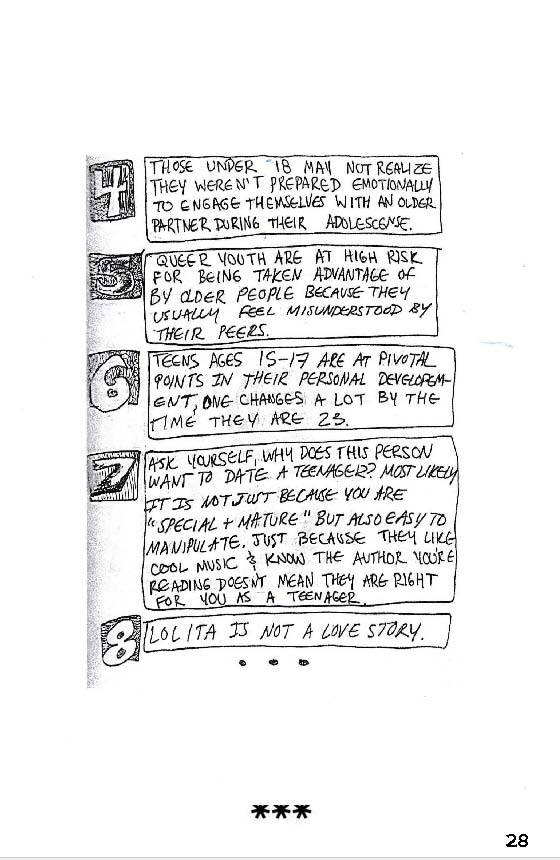 4 THOSE UNDER 18 MAY NOT REALIZE
THEY WEREN'T PREPARED EMOTIONALLY
TO ENGAGE THEMSELVES WITH AN OLDER
PARTNER DURING THEIR ADOLESCENSE.
5 QUEER YOUTH ARE AT HIGH RISK
FOR BEING TAKEN ADVANTAGE OF
BY OLDER PEOPLE BECAUSE THEY
USUALLY FEEL MISUNDERSTOOD BY
THEIR PEERS.
6 TEENS AGES 15-17 ARE AT PIVOTAL
POINTS IN THEIR PERSONAL DEVELOPEM-
ENT, ONE CHANGES A LOT BY THE
TIME THEY ARE 23.
7 ASK YOURSELF, WHY DOES THIS PERSON
WANT TO DATE A TEENAGER? MOST LIKELY
IT IS NOT JUST BECAUSE YOU ARE
"SPECIAL + MATURE" BUT ALSO EASY TO
MANIPULATE. JUST BECAUSE THEY LIKE
COOL MUSIC & KNOW THE AUTHOR YOU'RE
READING DOESN'T MEAN THEY ARE RIGHT
FOR YOU AS A TEENAGER.
8 LOLITA IS NOT A LOVE STORY.
• • •
***
28